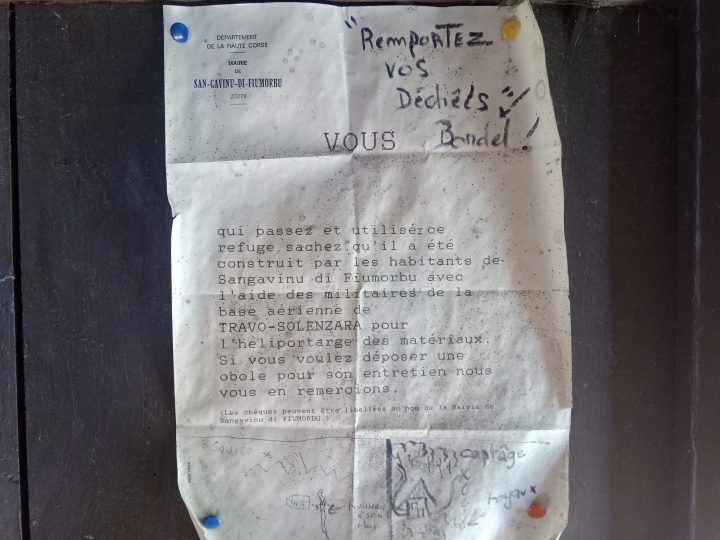 DEPARTEMENT
DE LA HAUTE CORSE
MAIRIE
DE
SAN-GAVINU-DI-FIUMORBU
"REMPORTEZ
VOS
Déchets"
VOUS
qui passez et utilisez ce
refuge sachez qu'il a été
construit par les habitants de
Sangavinu di Fiumorbu avec
l'aide des militaires de la
base aérienne de
TRAVO-SOLENZARA pour
l'héliportarge des matériaux.
Si vous voulez déposer une
obole pour son entretien nous
vous en remercions.
(Les chèques peuvent être libellées au non de la Mairie de
Sangavinu di FIUMORBU.)
captage